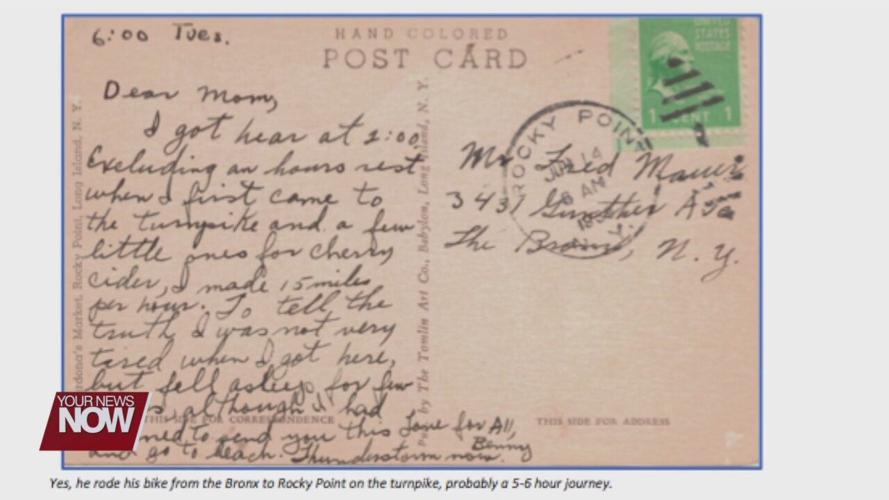 6:00 Tues.
HAND COLORED
POST CARD
UNITED
STATES
POSTAGE
1 CENT 1
ROCKY POINT
JUN 14
AM
N.Y.
Dear Mom,
I got hear at 2:00
Excluding an hours rest
when I first came to
the turnpike and a few
little ones for cherry
cider, I made 15 miles
per hour. To tell the
truth I was not very
tired when I got here,
but fell asleep for few
although I had
to send you this Love for All,
and go to beach. Thunderstorm now. Benny
Mr Fred Mauer
3437 Gunther Ave
The Bronx, N.Y.
Market, Rocky Point, Long Island, N. Y.
by The Tomlin Art Co., Babylon, Long Island, N. Y.
THIS SIDE FOR CORRESPONDENCE
THIS SIDE FOR ADDRESS
YOUR NEWS
NOW
Yes, he rode his bike from the Bronx to Rocky Point on the turnpike, probably a 5-6 hour journey.